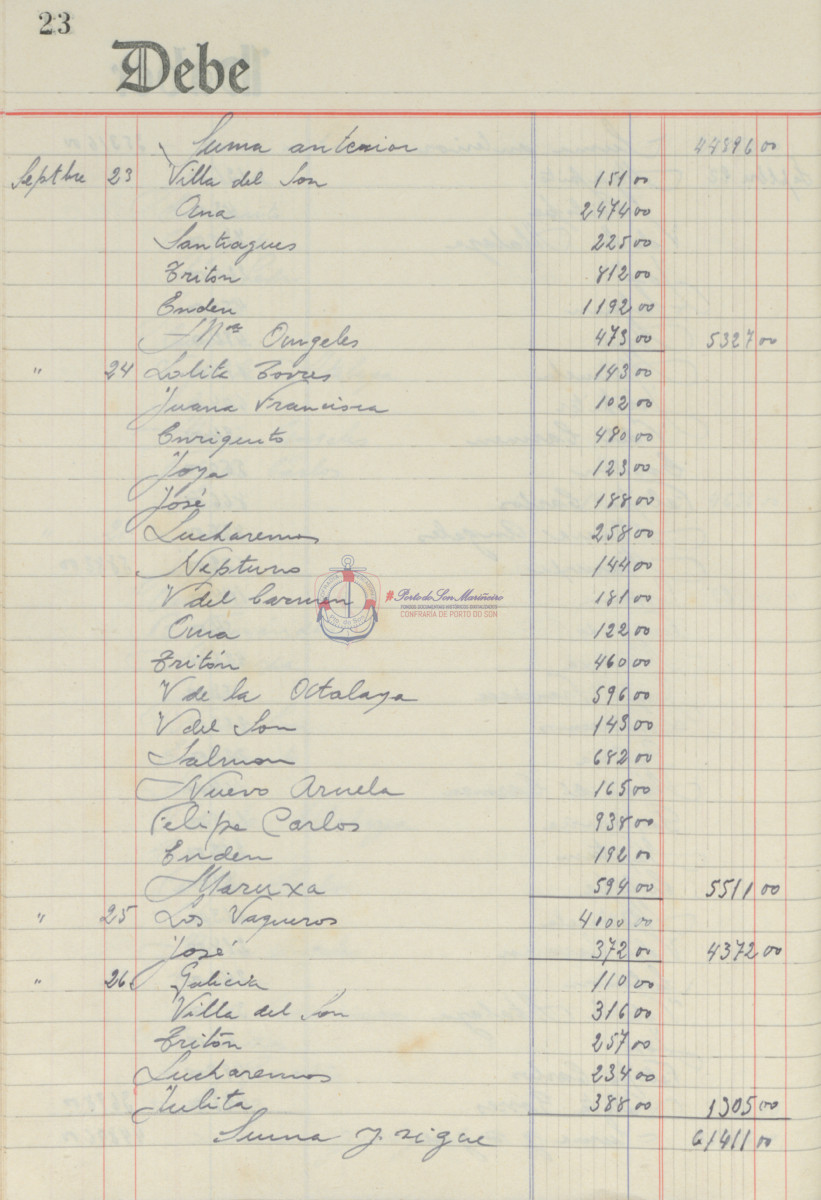 23
Debe
Suma anterior 44896 00
Septbre 23 Villa del Son 151 00
Ana 2474 00
Santiagues 225 00
Triton 812 00
Enden 1192 00
Mª Angeles 473 00 5327 00
" 24 Lolita Torres 143 00
Juana Francisca 102 00
Enriquito 480 00
Joya 123 00
José 188 00
Lucharemos 258 00
Neptuno 144 00
V del Carmen 181 00
Ana 122 00
Tritón 460 00
V de la Atalaya 596 00
V del Son 143 00
Salmon 682 00
Nuevo Aruela 165 00
Felipe Carlos 938 00
Enden 192 00
Maruxa 594 00 5511 00
" 25 Los Vaqueros 4000 00
José 372 00 4372 00
" 26 Galicia 110 00
Villa del Son 316 00
Tritón 257 00
Lucharemos 234 00
Julita 388 00 1305 00
Suma y sigue 61411 00
#PortodoSon Mariñeiro
FONDOS DOCUMENTAIS HISTÓRICOS DIXITALIZADOS
CONFRARÍA DE PORTO DO SON